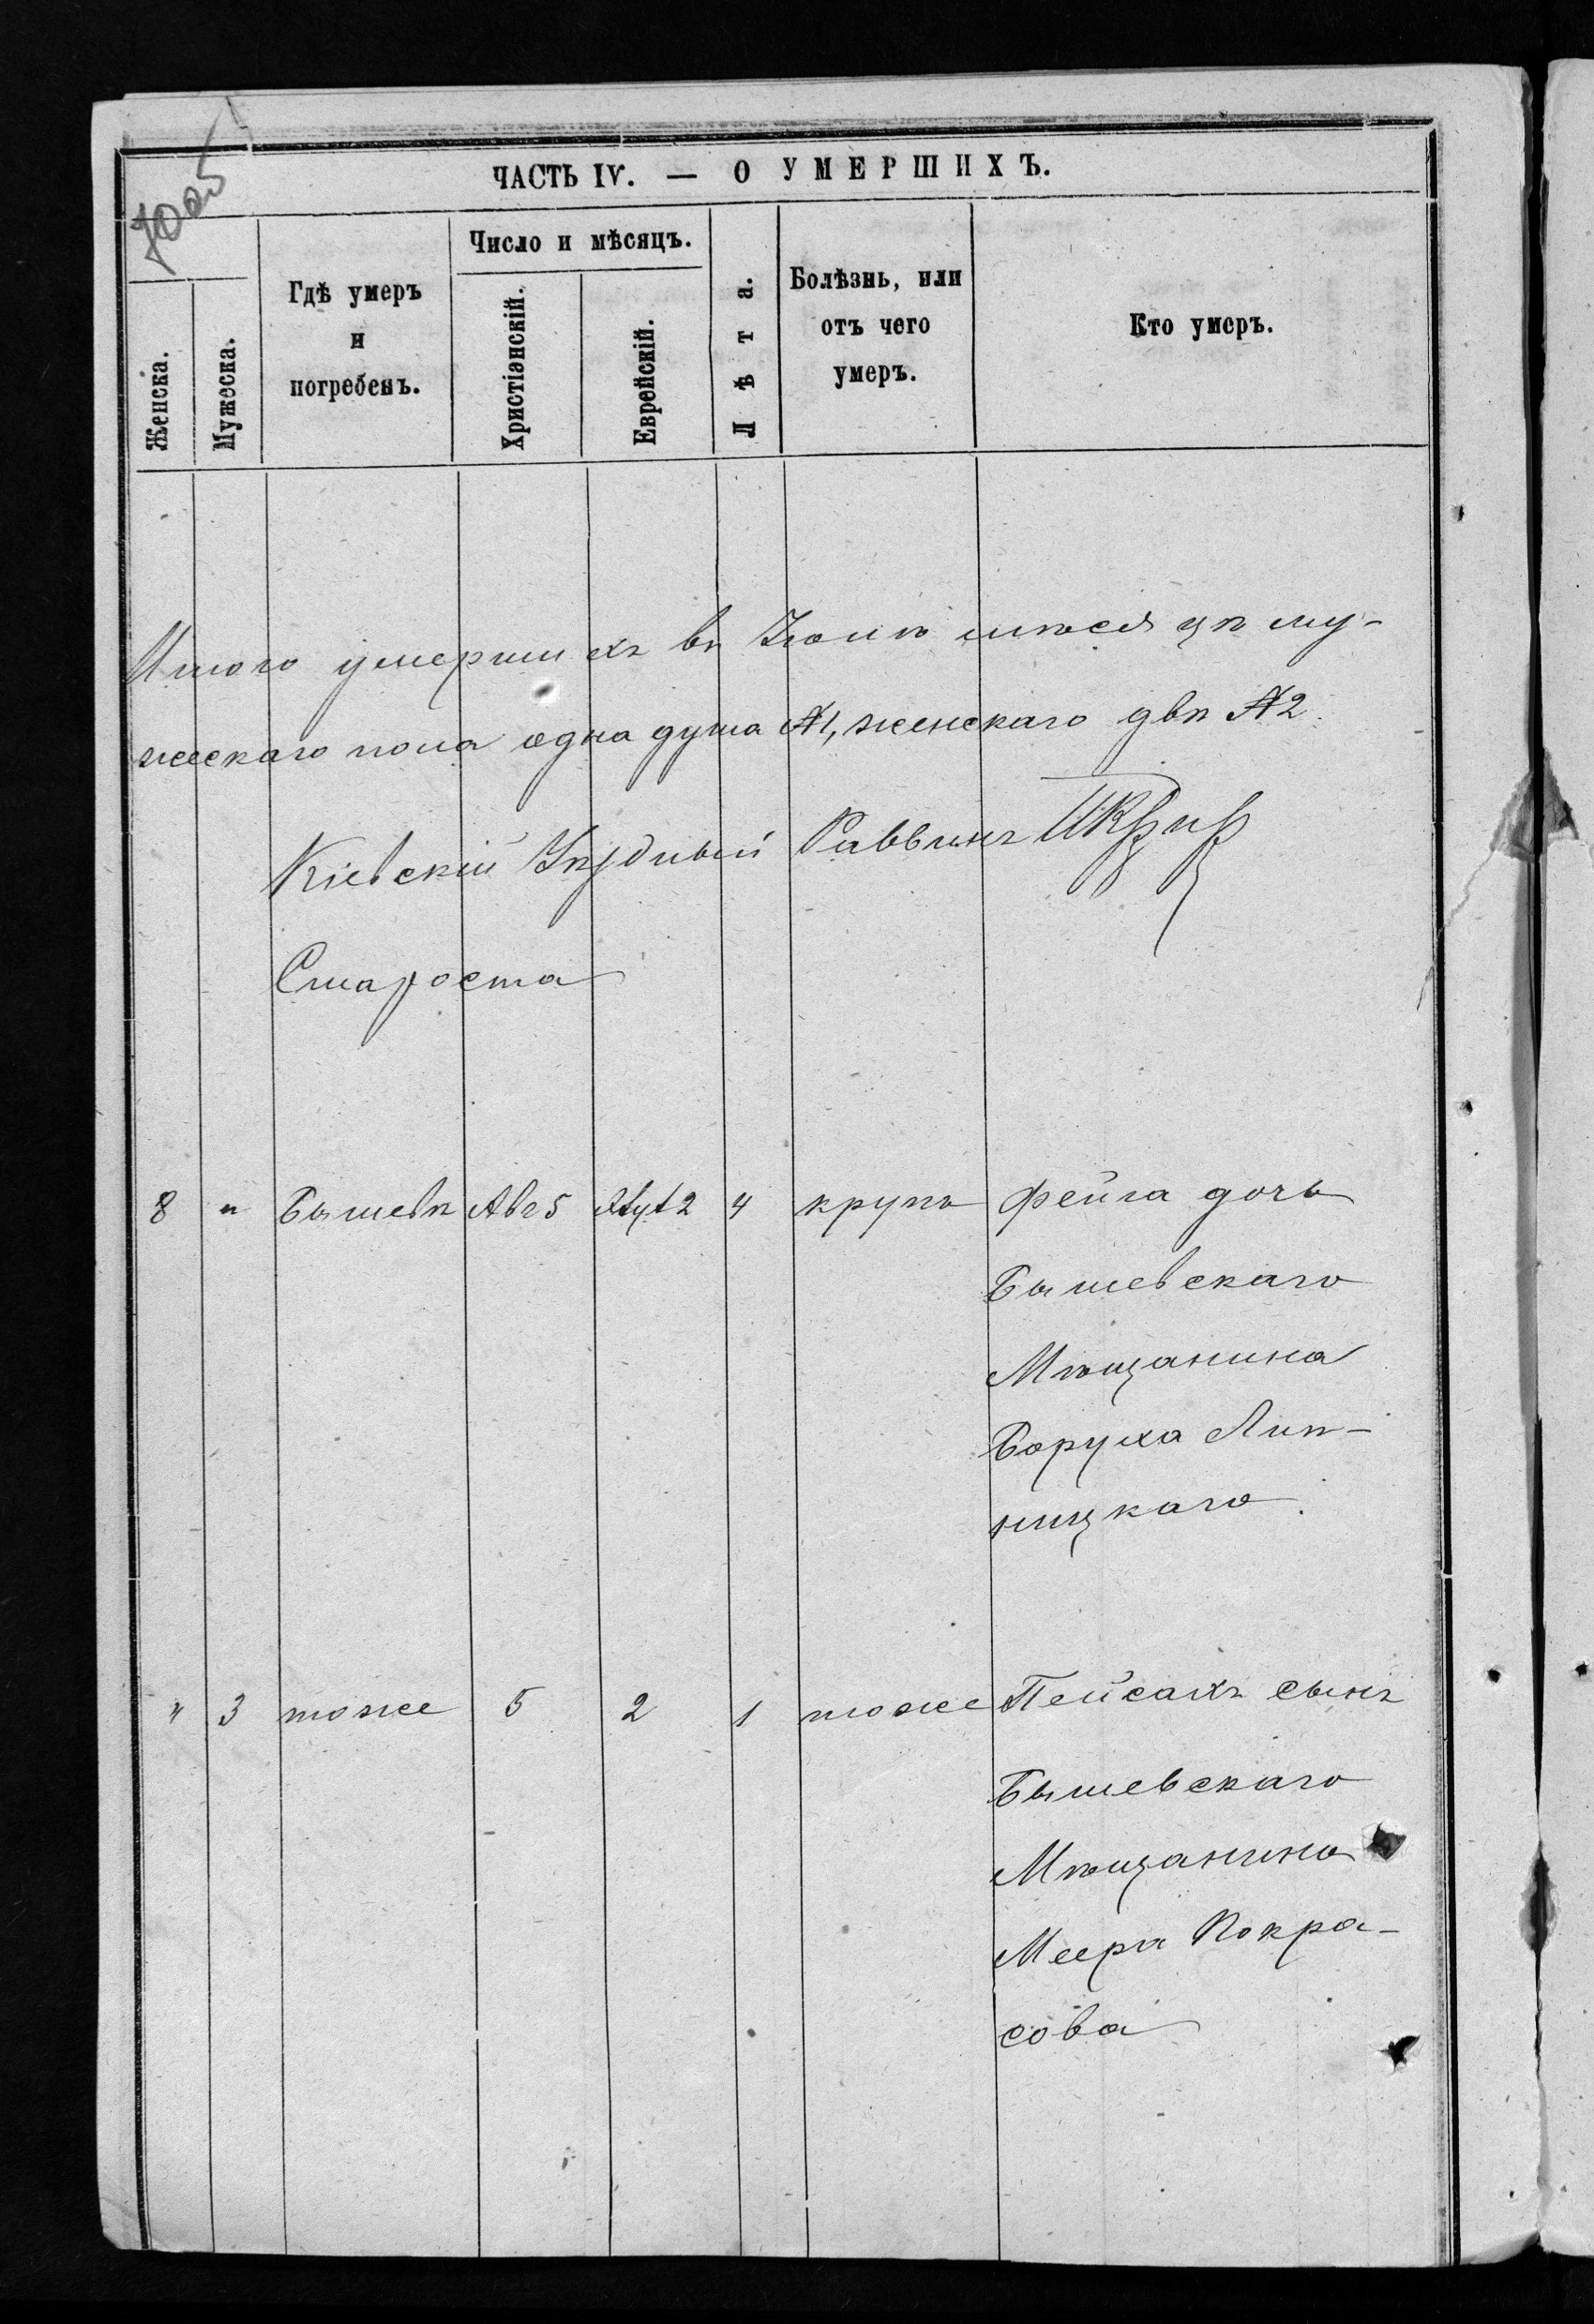 ЧАСТЬ IV. — О УМЕРШИХЪ.
Женска.
Мужеска.
Гдѣ умеръ
и
погребенъ.
Число и мѣсяцъ.
Христіанскій.
Еврейскій.
Лѣта.
Болѣзнь, или
отъ чего
умеръ.
Кто умеръ.
Итого умершихъ въ Іюлѣ мѣсяцѣ му-
жескаго пола одна душа №1, женскаго двѣ №2.
Кіевскій Уѣздный Раввинъ
Староста
8 " Бышевѣ Авг 5 2 4 крупъ Фейга дочь
Бышевскаго
Мѣщанина
Боруха Лип-
ницкаго.
" 3 тоже 5 2 1 тоже Пейсахъ сынъ
Бышевскаго
Мѣщанина
Меера Покра-
сова